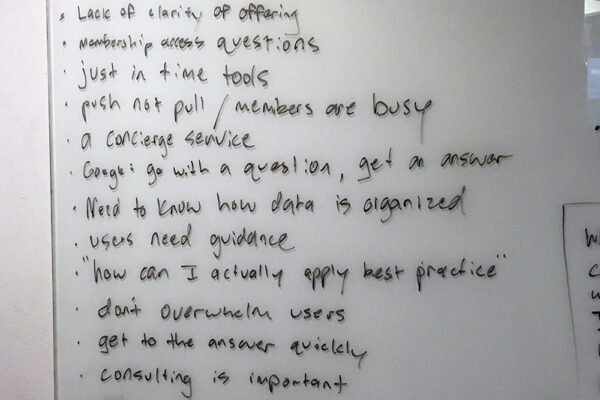 · Lack of clarity of offering
· membership access questions
· just in time tools
· push not pull / members are busy
· a concierge service
· Google: go with a question, get an answer
· Need to know how data is organized
· users need guidance
· "how can I actually apply best practice"
· don't overwhelm users
· get to the answer quickly
· consulting is important